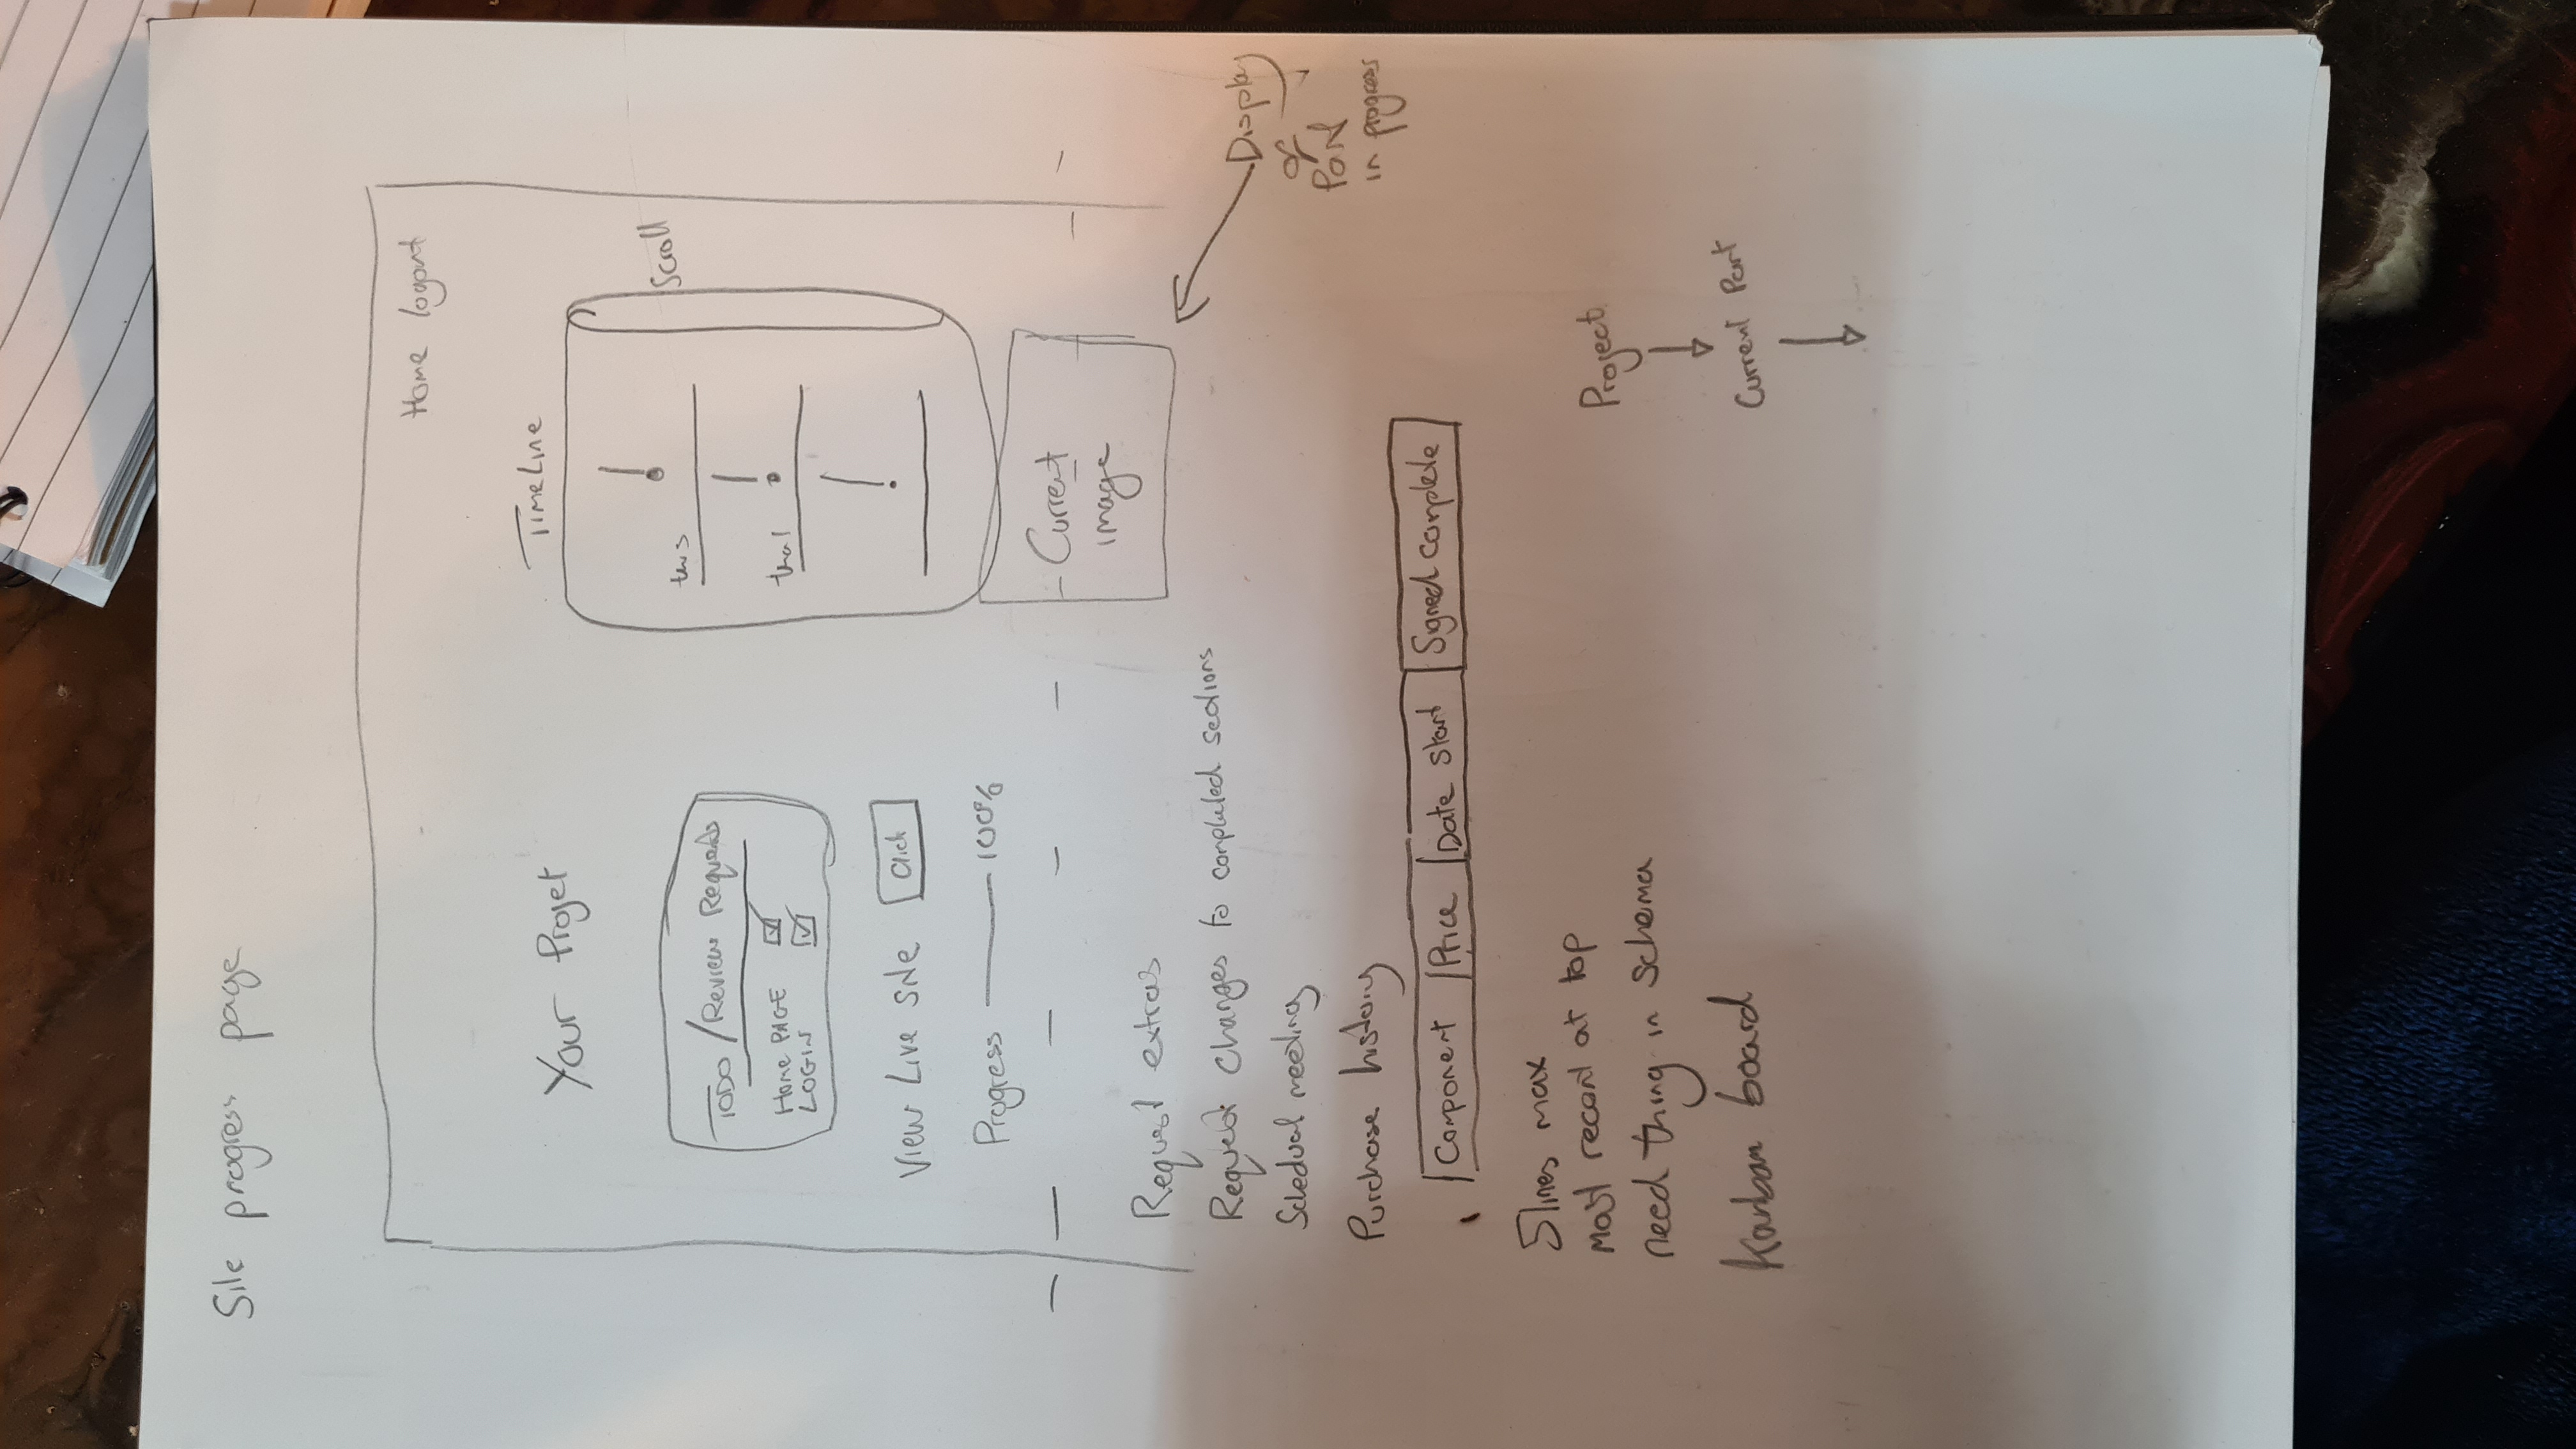 Site progress page
Home logout
Your Projet
TODO / Review Requests
Home PAGE
LOGIN
View Live site Click
Progress 100%
TimeLine
this
that
Scroll
Current
image
Display
of
Part
in progress
Request extras
Request changes to completed sections
Schedual meeting
Purchase history
Component Price Date Start Signed complete
5 lines max
most recent at top
need thing in schema
Kanban board
Project
Current Part